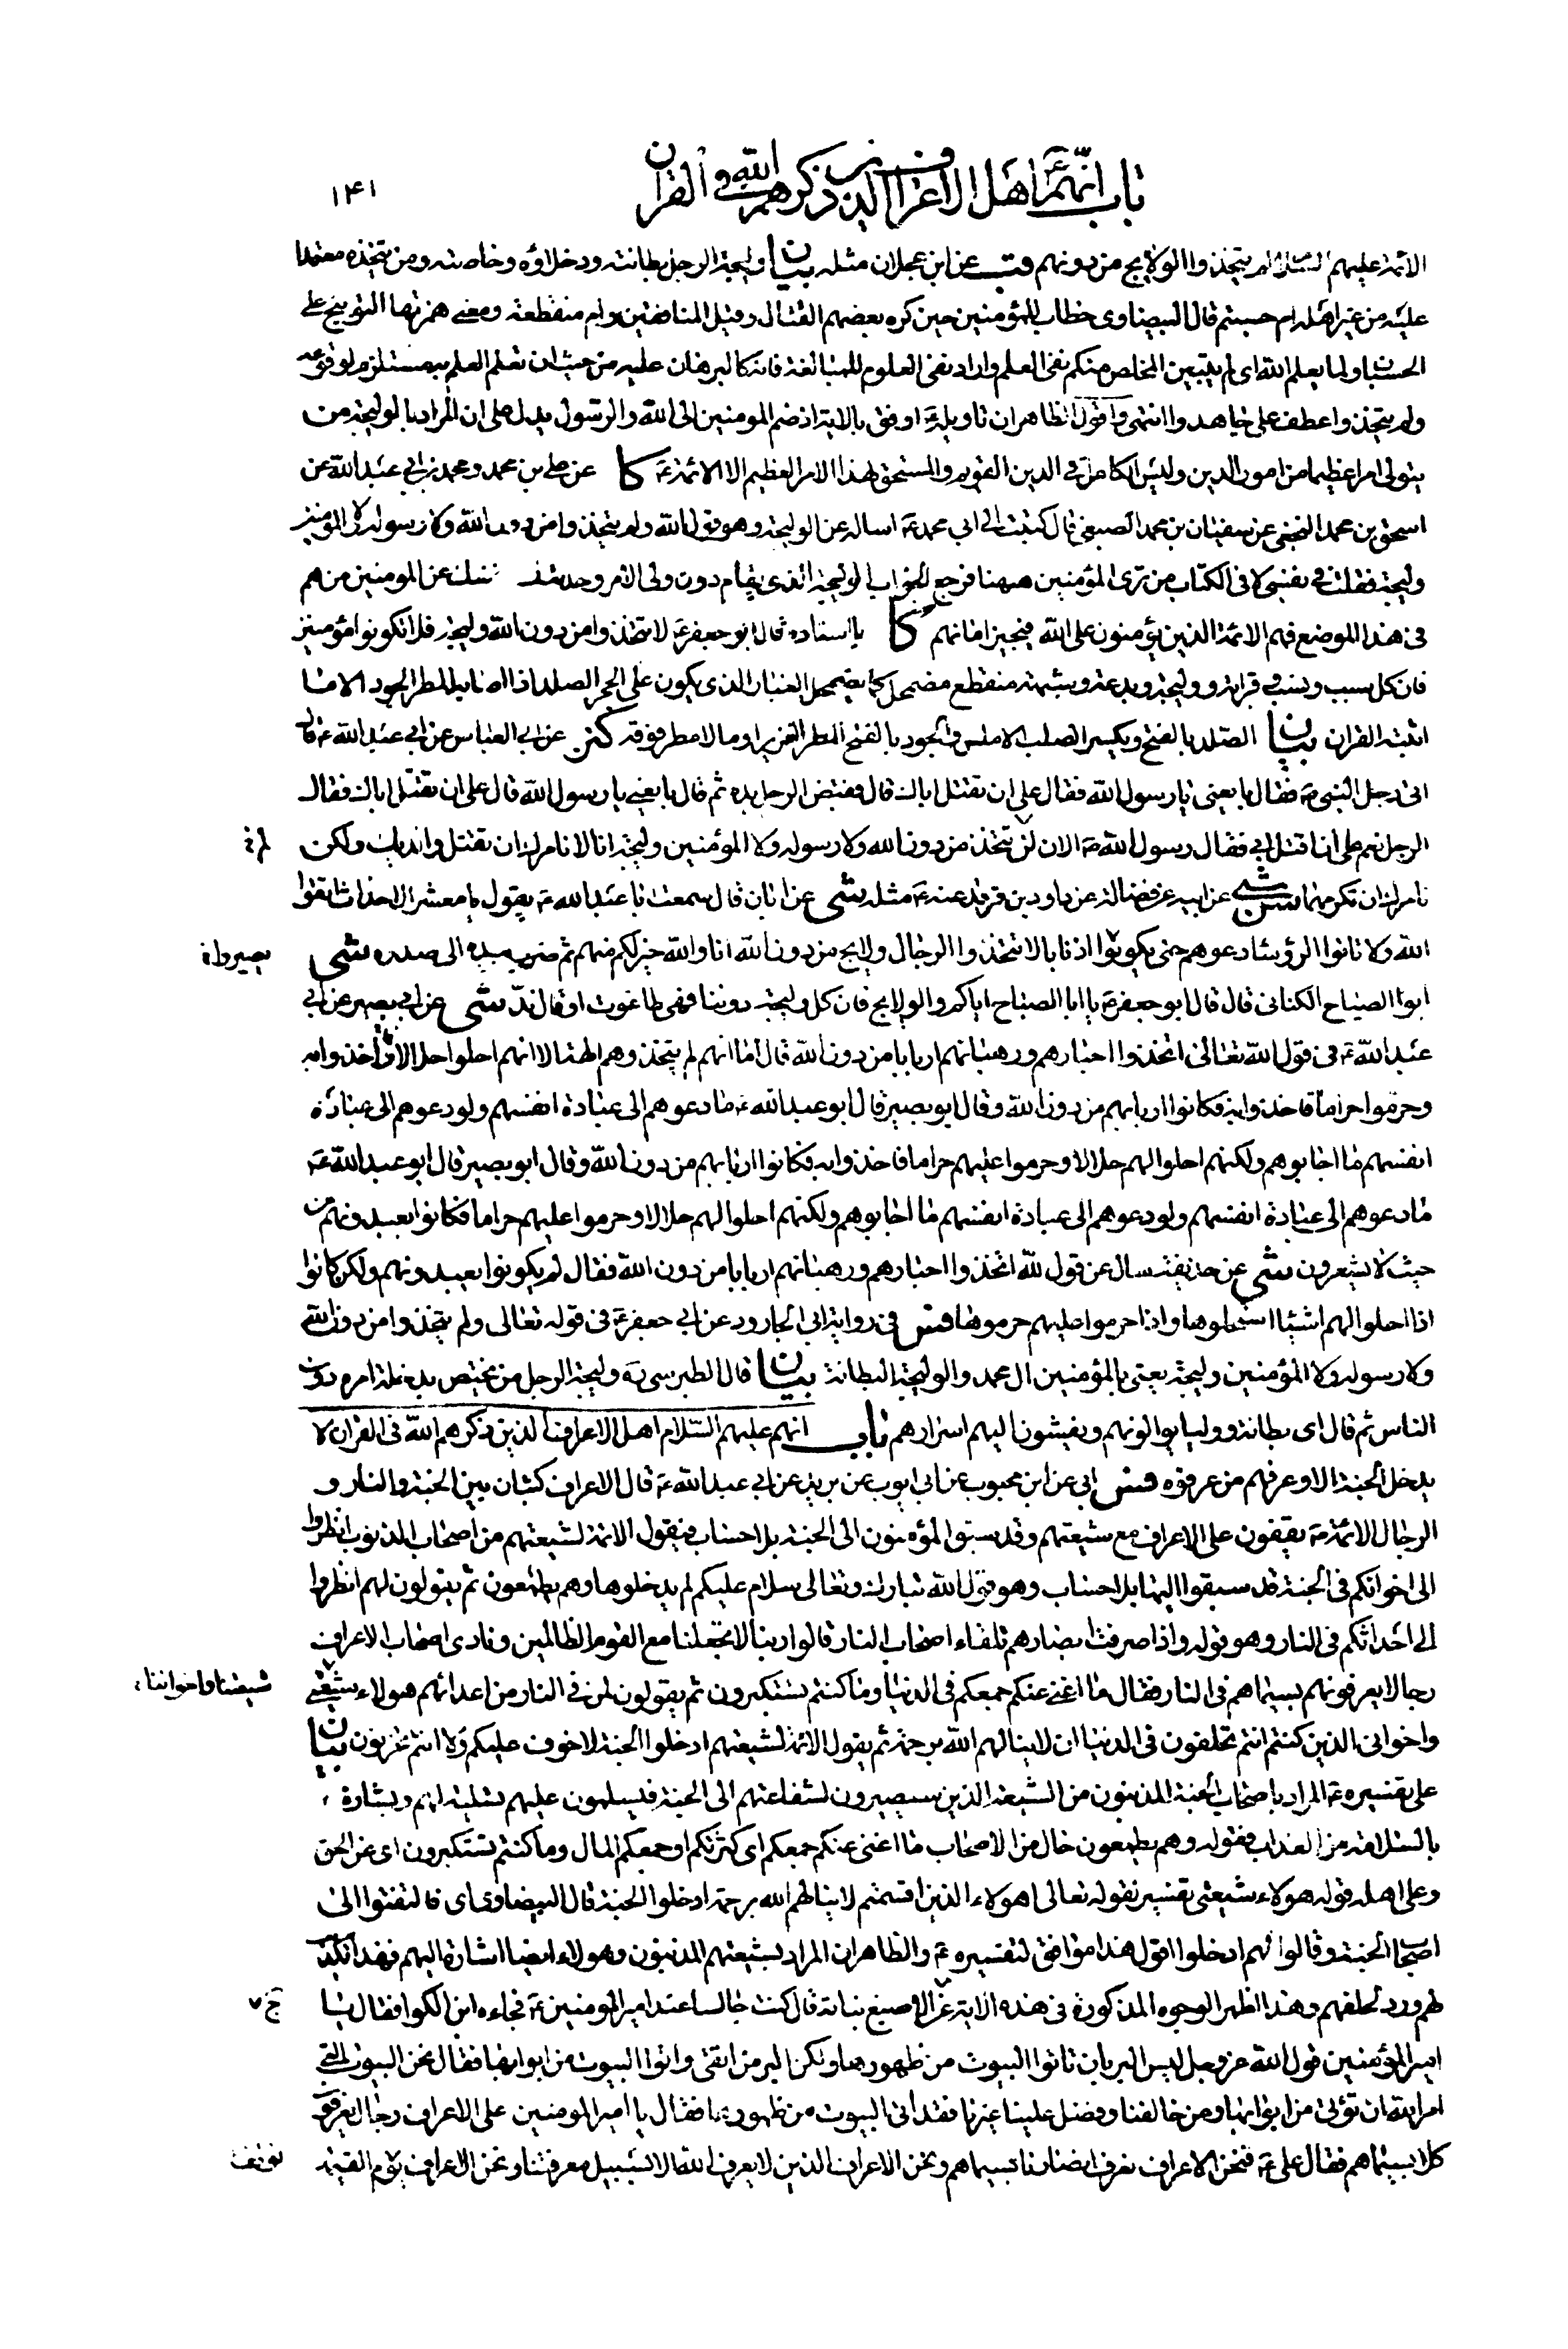 باب انهم ع اهل الاعراف الذين ذكرهم الله في القران
۱۴۱
الائمة عليهم السلام لم يتخذوا الولايج من دونهم قب عن ابن عجلان مثله بيان وليجة الرجل بطانته ودخلاؤه وخاصته ومن يتخذه معتمدا
عليه من غير اهله ام حسبتم قال البيضاوى خطاب للمؤمنين حين كره بعضهم القتال وقيل المنافقين وام منقطعة ومعنى همزتها التوبيخ على
الحسبان ولما يعلم الله اى لم يتبين المخلص منكم نفى العلم واراد نفى المعلوم للمبالغة فانه كالبرهان عليه من حيث ان تعلم العلم به مستلزم لوقوعه
ولم يتخذوا عطف على جاهدوا انتهى واقول الظاهر ان تاويله ع اوفق بالاية اذ ضم المومنين الى الله والرسول يدل على ان المراد بالوليجة من
يتولى امرا عظيما من امور الدين وليس الكامل فى الدين القويم والمستحق لهذا الامر العظيم الا الائمة ع كا عن على بن محمد ومحمد بن ابى عبد الله عن
اسحق بن محمد النخعى عن سفيان بن محمد الضبعى قال كتبت الى ابى محمد ع اساله عن الوليجة وهو قول الله ولم يتخذوا من دون الله ولا رسوله ولا المؤمنين
وليجة فقلت فى نفسى لا فى الكتاب من ترى المؤمنين ههنا فرجع الجواب الوليجة الذى يقام دون ولى الامر وحدثتك نفسك عن المومنين من هم
فى هذا الموضع فهم الائمة الذين يؤمنون على الله فيجيز امانهم كا باسناده قال ابو جعفر ع لا تتخذوا من دون الله وليجة فلا تكونوا مؤمنين
فان كل سبب ونسب وقرابة ووليجة وبدعة وشبهة منقطع مضمحل كما يضمحل الغبار الذى يكون على الحجر الصلد اذا اصابه المطر الجود الا ما
اثبته القران بيان الصلد بالفتح ويكسر الصلب الاملس والجود بالفتح المطر الغزير او ما لا مطر فوقه كنز عن ابى العباس عن ابى عبد الله ع قال
اتى رجل النبى ص فقال بايعنى يا رسول الله فقال على ان تقتل اباك قال فقبض الرجل يده ثم قال بايعنى يا رسول الله قال على ان تقتل اباك فقال
الرجل نعم على ان اقتل ابى فقال رسول الله ص الان لن تتخذ من دون الله ولا رسوله ولا المؤمنين وليجة انا لا نامرك ان تقتل والديك ولكن
لم خ
نامرك ان تكرمهما سن عن ابيه عن فضالة عن داود بن فرقد عنه ع مثله شى عن ابان قال سمعت ابا عبد الله ع يقول يا معشر الاحداث اتقوا
الله ولا تاتوا الرؤساء دعوهم حتى يكونوا اذنابا لا تتخذوا الرجال ولايج من دون الله انا والله خير لكم منهم ثم ضرب بيده الى صدره شى
يصيروا خ
ابو الصباح الكنانى قال قال ابو جعفر ع يا ابا الصباح اياكم والولايج فان كل وليجة دوننا فهى طاغوت او قال ندّ شى عن ابى بصير عن ابى
عبد الله ع فى قول الله تعالى اتخذوا احبارهم ورهبانهم اربابا من دون الله قال اما انهم لم يتخذوهم الهة الا انهم احلوا حلالا فاخذوا به
وحرموا حراما فاخذوا به فكانوا اربابهم من دون الله وقال ابو بصير قال ابو عبد الله ع ما دعوهم الى عبادة انفسهم ولو دعوهم الى عبادة
انفسهم ما اجابوهم ولكنهم احلوا لهم حلالا وحرموا عليهم حراما فاخذوا به فكانوا اربابهم من دون الله وقال ابو بصير قال ابو عبد الله ع
ما دعوهم الى عبادة انفسهم ولو دعوهم الى عبادة انفسهم ما اجابوهم ولكنهم احلوا لهم حلالا وحرموا عليهم حراما فكانوا يعبدونهم من
حيث لا يشعرون شى عن حذيفة سال عن قول لله اتخذوا احبارهم ورهبانهم اربابا من دون الله فقال لم يكونوا يعبدونهم ولكن كانوا
اذا احلوا لهم اشيئا استحلوها واذا حرموا عليهم حرموها فس فى رواية ابى الجارود عن ابى جعفر ع فى قوله تعالى ولم يتخذوا من دون الله
ولا رسوله ولا المؤمنين وليجة يعنى بالمؤمنين ال محمد والوليجة البطانة بيان قال الطبرسى ره وليجة الرجل من يختص بدخلة امره دون
الناس ثم قال اى بطانة ووليا يوالونهم ويفشون اليهم اسرارهم باب انهم عليهم السلام اهل الاعراف الذين ذكرهم الله فى القران لا
يدخل الجنة الا وعرفهم من عرفوه فس ابى عن ابن محبوب عن ابى ايوب عن بريد عن ابى عبد الله ع قال الاعراف كثبان بين الجنة والنار و
الرجال الائمة ص يقفون على الاعراف مع شيعتهم وقد سبق المؤمنون الى الجنة بلا حساب فيقول الائمة لشيعتهم من اصحاب الذنوب انظروا
الى اخوانكم فى الجنة قد سبقوا اليها بلا حساب وهو قول الله تبارك وتعالى سلام عليكم لم يدخلوها وهم يطمعون ثم يقولون لهم انظروا
الى اعدائكم فى النار وهو قوله واذا صرفت ابصارهم تلقاء اصحاب النار قالوا ربنا لا تجعلنا مع القوم الظالمين ونادى اصحاب الاعراف
رجالا يعرفونهم بسيماهم فى النار فقال ما اغنى عنكم جمعكم فى الدنيا وما كنتم تستكبرون ثم يقولون لمن فى النار من اعدائهم هولاء شيعتى
شيعتنا واخواننا خ
واخوانى الذين كنتم انتم تحلفون فى الدنيا ان لا ينالهم الله برحمة ثم يقول الائمة لشيعتهم ادخلوا الجنة لا خوف عليكم ولا انتم تحزنون بيان
على تفسيره ع المراد باصحاب الجنة المذنبون من الشيعة الذين سيصيرون لشفاعتهم الى الجنة فيسلمون عليهم تسلية لهم وبشارة
بالسلامة من العذاب فقوله وهم يطمعون حال من الاصحاب ما اغنى عنكم جمعكم اى كثرتكم او جمعكم المال وما كنتم تستكبرون اى عن الحق
وعلى اهله قوله هولاء شيعتى تفسير لقوله تعالى اهولاء الذين اقسمتم لا ينالهم الله برحمة ادخلوا الجنة قال البيضاوى اى فالتفتوا الى
اصحاب الجنة وقالوا لهم ادخلوا اقول هذا موافق لتفسيره ع والظاهر ان المراد بشيعتهم المذنبون وهولاء ايضا اشارة اليهم فهذا تكذيب
لهم ورد لحلفهم وهذا اظهر الوجوه المذكورة فى هذه الاية عن الاصبغ بن نباتة قال كنت جالسا عند امير المومنين ع فجاءه ابن الكوا فقال يا
ج
امير المؤمنين قول الله عز وجل ليس البر بان تاتوا البيوت من ظهورها ولكن البر من اتقى واتوا البيوت من ابوابها فقال نحن البيوت التى
امر الله ان تؤتى من ابوابها ومن خالفنا وفضل علينا غيرنا فقد اتى البيوت من ظهورها فقال يا امير المومنين على الاعراف رجال يعرفون
كلا بسيماهم فقال على ع فنحن الاعراف نعرف انصارنا بسيماهم ونحن الاعراف الذين لا يعرف الله الا بسبيل معرفتنا ونحن الاعراف يوم القيمة
نوقف